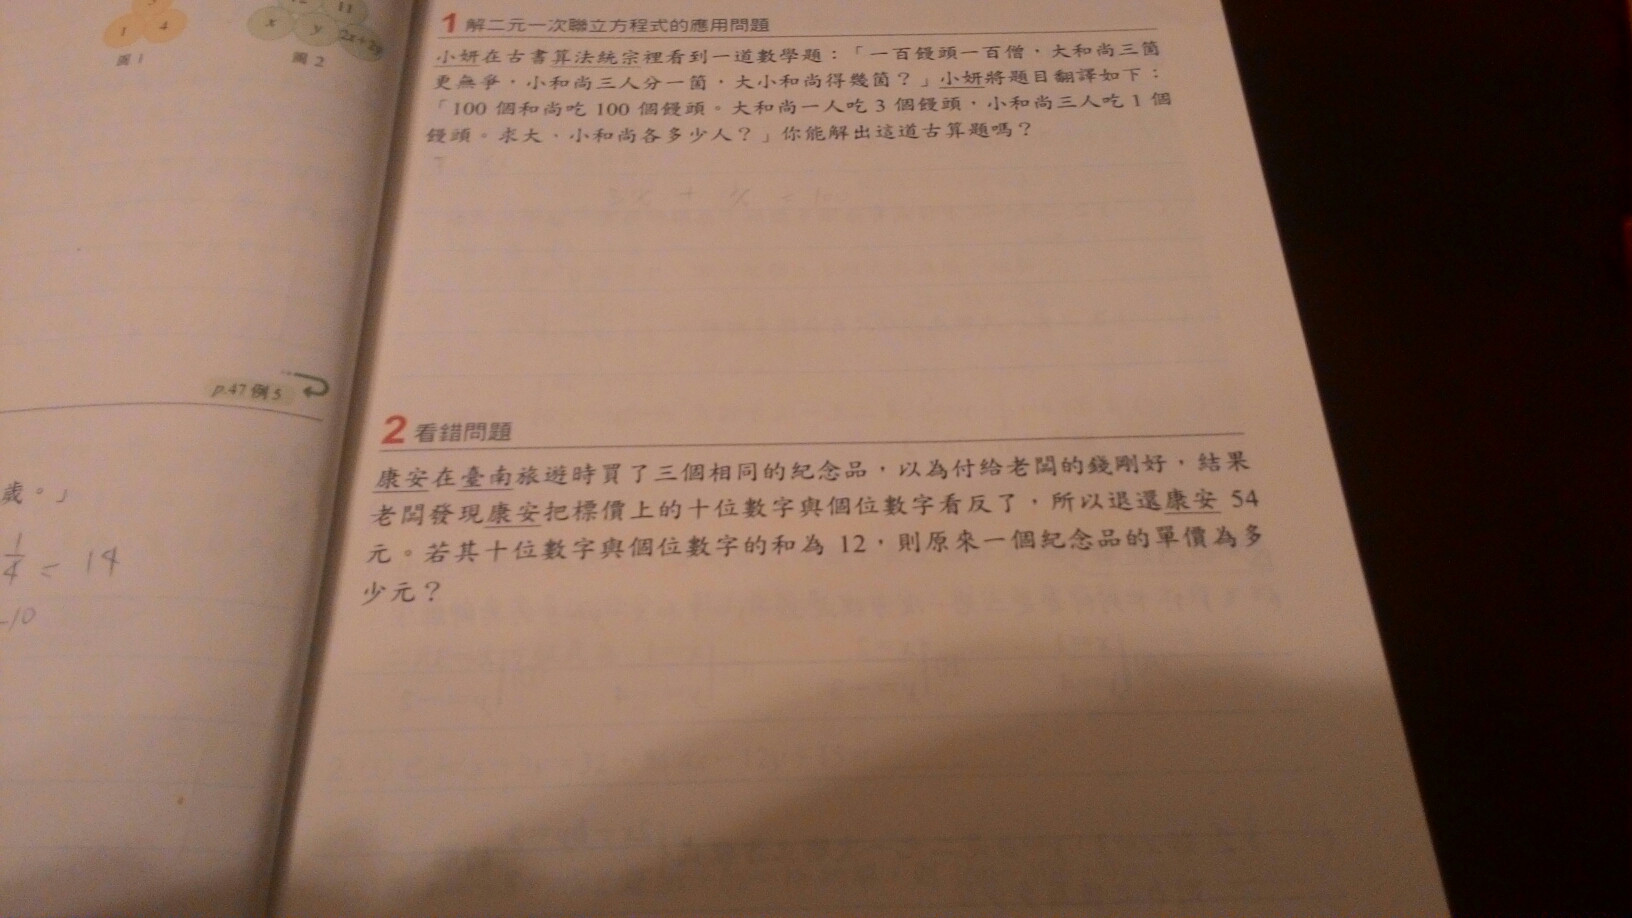 3
1
4
圖1
11
x
y
2x+3y
圖2
p.47例5
歲。」
1/4 = 14
-10
1 解二元一次聯立方程式的應用問題
小妍在古書算法統宗裡看到一道數學題：「一百饅頭一百僧，大和尚三箇
更無爭，小和尚三人分一箇，大小和尚得幾箇？」小妍將題目翻譯如下：
「100 個和尚吃 100 個饅頭。大和尚一人吃 3 個饅頭，小和尚三人吃 1 個
饅頭。求大、小和尚各多少人？」你能解出這道古算題嗎？
2 看錯問題
康安在臺南旅遊時買了三個相同的紀念品，以為付給老闆的錢剛好，結果
老闆發現康安把標價上的十位數字與個位數字看反了，所以退還康安 54
元。若其十位數字與個位數字的和為 12，則原來一個紀念品的單價為多
少元？